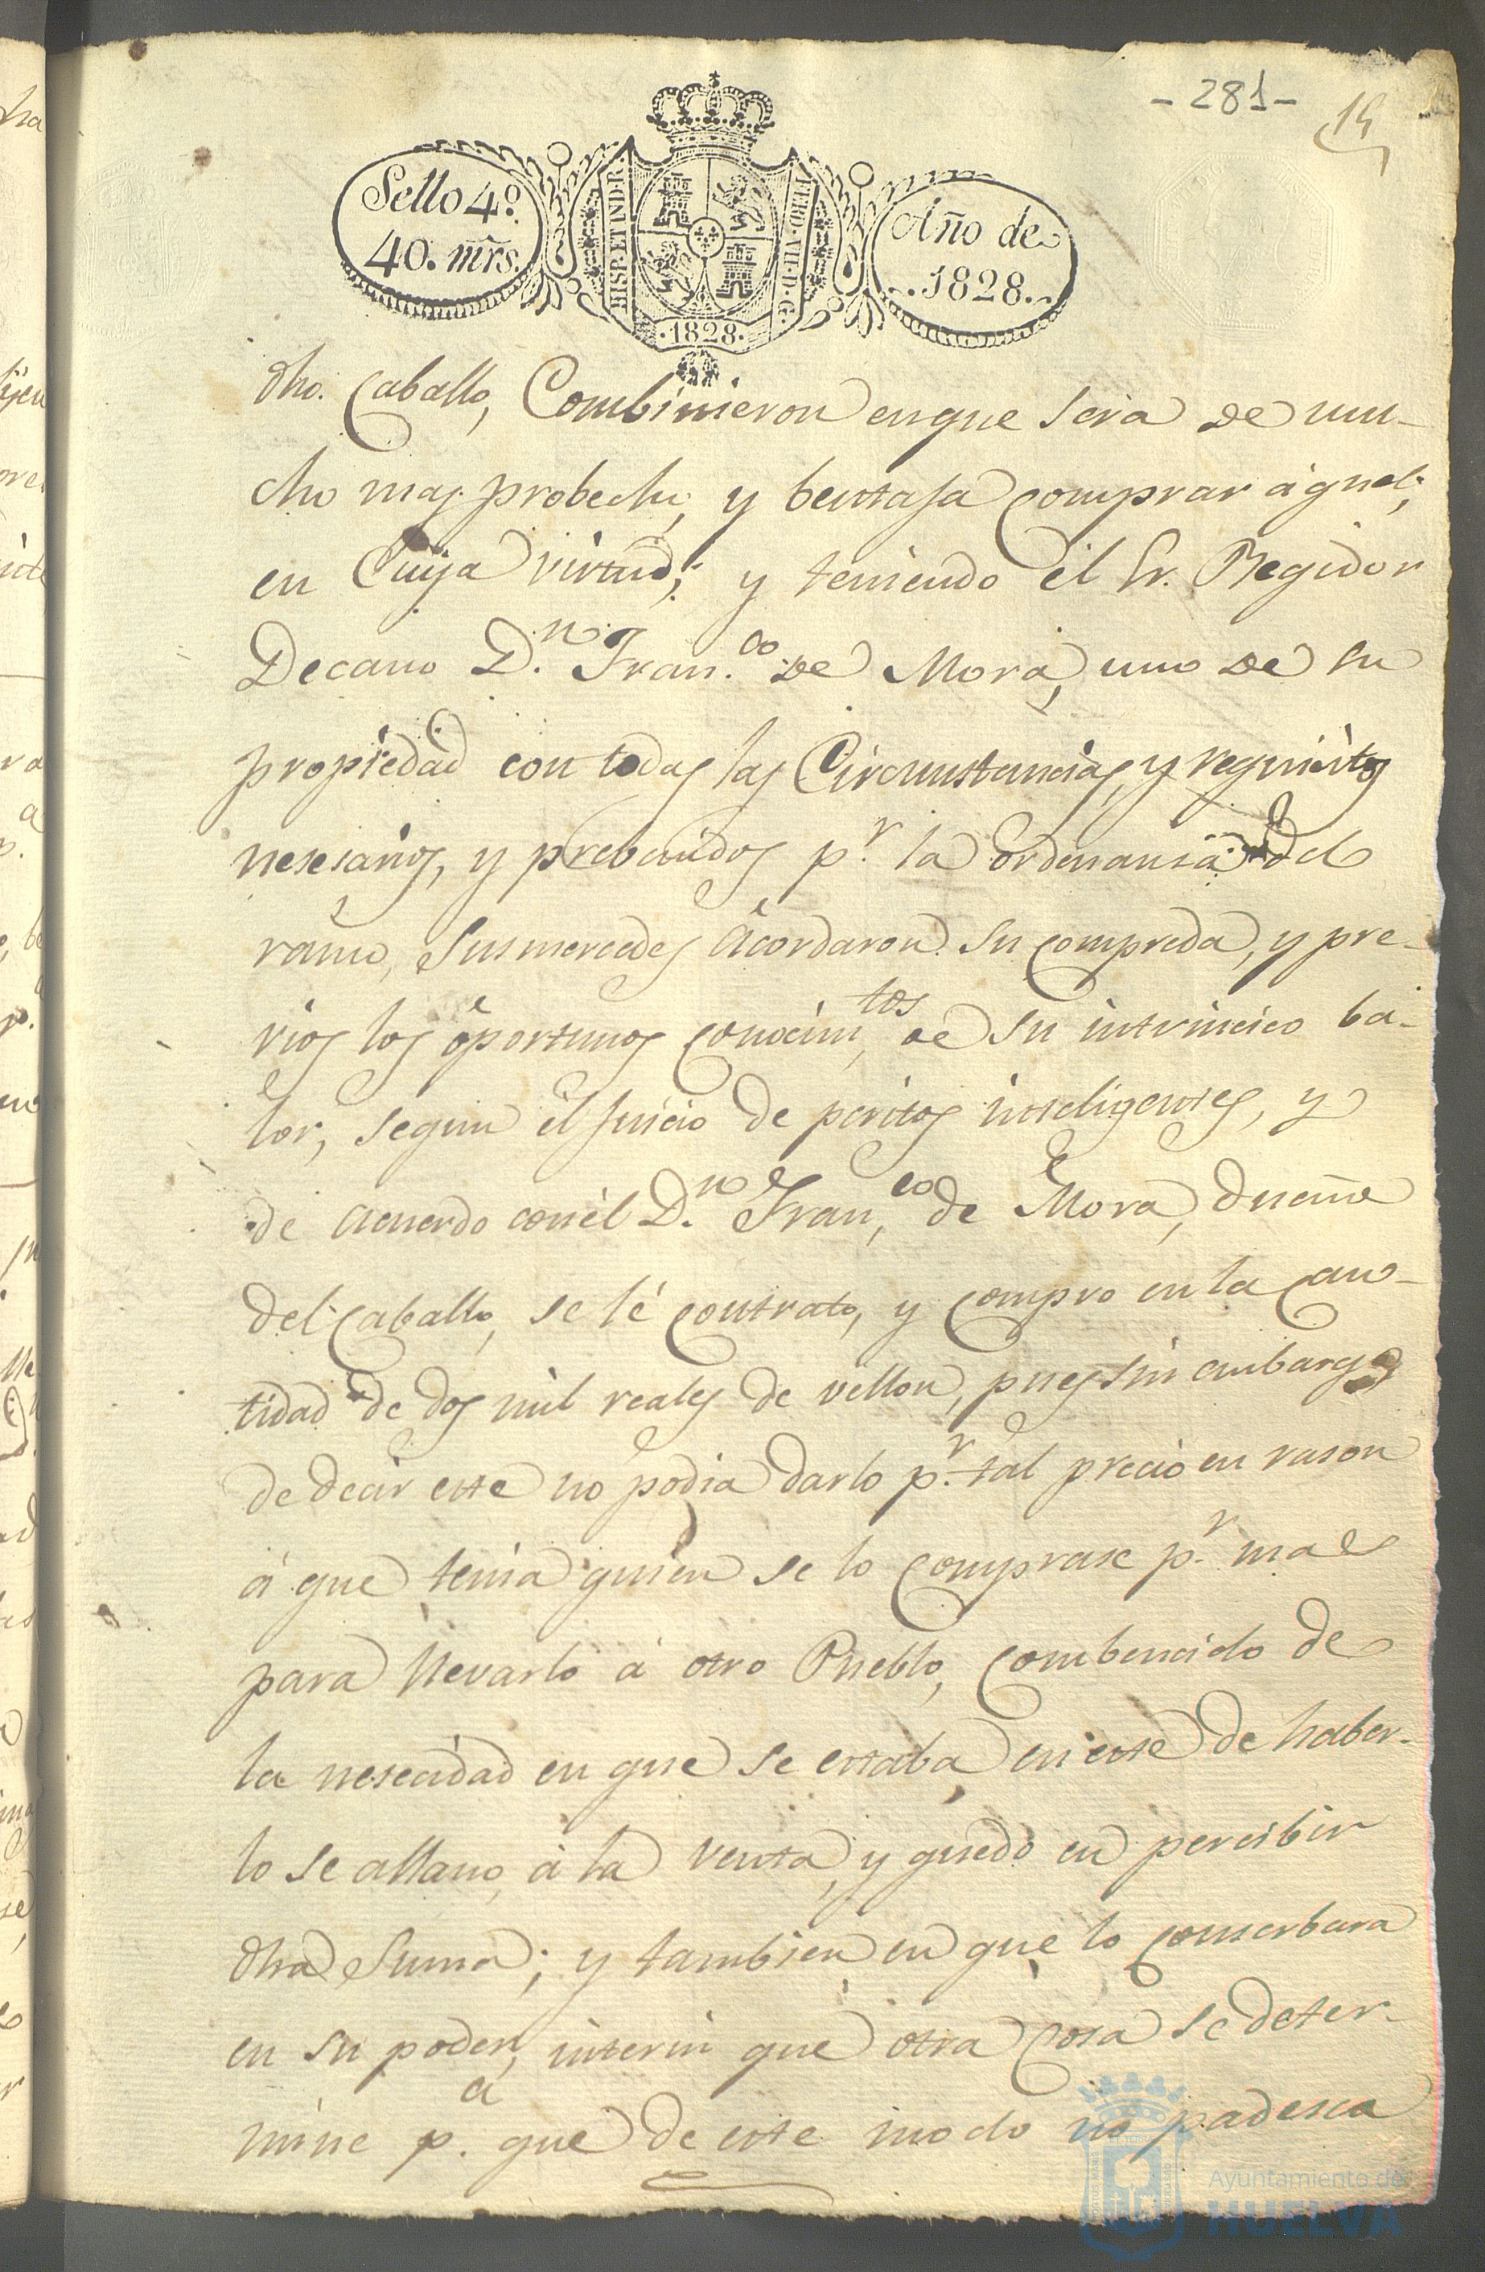 - 281 -
Sello 4º.
40. mrs.
HISP. ET IND. R.
FERD. VII. D. G.
·1828·
Año de
..1828..
dho. Caballo, Combinieron en que sería de mu-
cho mas probecho, y bentaja comprar áquel;
en Cuya virtud; y teniendo él Sr. Regidor
Decano D.n Fran.co de Mora, uno de su
propiedad con todas las Circunstancias, y requisitos
nesesarios, y prebenidos p.r la ordenansa del
ramo, Susmercedes Acordaron su compreda, y pre-
vios los oportunos conocim,tos de su intrincico ba-
lor, segun él Juicio de peritos inteligentes, y
de Acuerdo con él D.n Fran,co de Mora, dueño
del Caballo, se lé contrato, y compro en la Can-
tidad de dos mil reales de vellon, pues sin embargo
de decir este no podia darlo p.r tal precio en rason
á que tenia quien se lo comprase p.r mas
para llevarlo á otro Pueblo, combencido de
la nesecidad en que se estaba en este de haber-
lo se allano, á la venta, y quedó en percibir
dha Suma; y tambien en que lo conserbara
en su poder, interin que otra cosa se deter-
mine p.a que de este modo no padesca
Ayuntamiento de
HUELVA